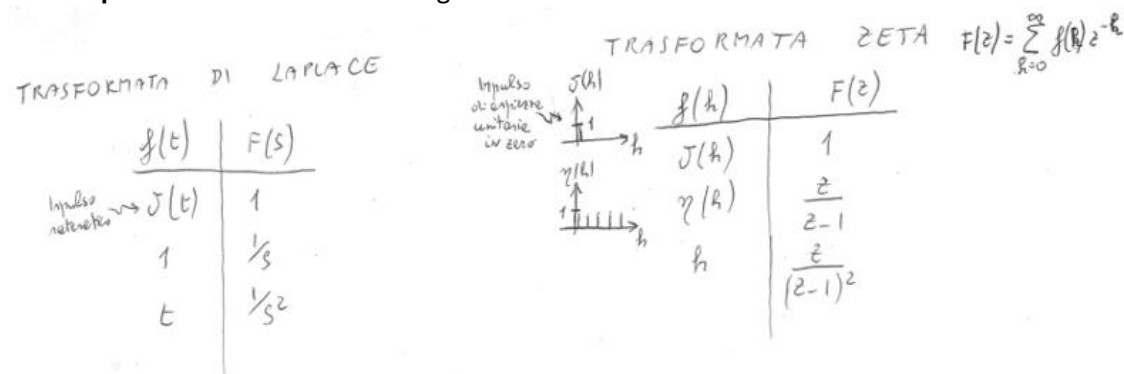 TRASFORMATA DI LAPLACE
f(t) F(s)
Impulso
δ(t) 1
1 1/s
t 1/s²
TRASFORMATA ZETA F(z) = ∑ f(h) z⁻ʰ
h=0 ∞
Impulso
di ampiezza
unitaria
in zero
δ(h)
1
h
η(h)
1
h
f(h) F(z)
δ(h) 1
η(h) z/(z-1)
h z/(z-1)²